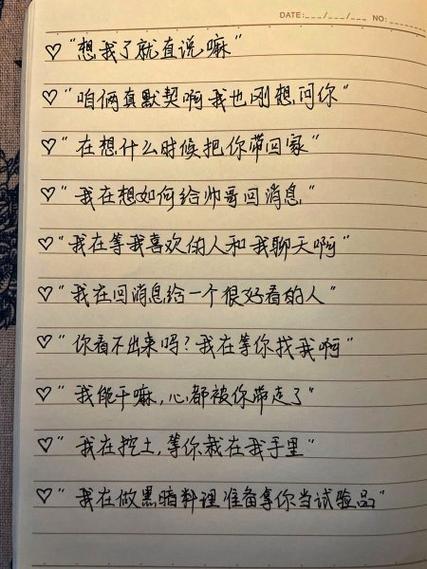 DATE:___/___/___ NO:
♡“想我了就直说嘛”
♡“咱俩真默契啊我也刚想问你”
♡“在想什么时候把你带回家”
♡“我在想如何给帅哥回消息”
♡“我在等我喜欢的人和我聊天啊”
♡“我在回消息给一个很好看的人”
♡“你看不出来吗?我在等你找我啊”
♡“我能干嘛,心都被你带走了”
♡“我在挖土,等你栽在我手里”
♡“我在做黑暗料理准备拿你当试验品”